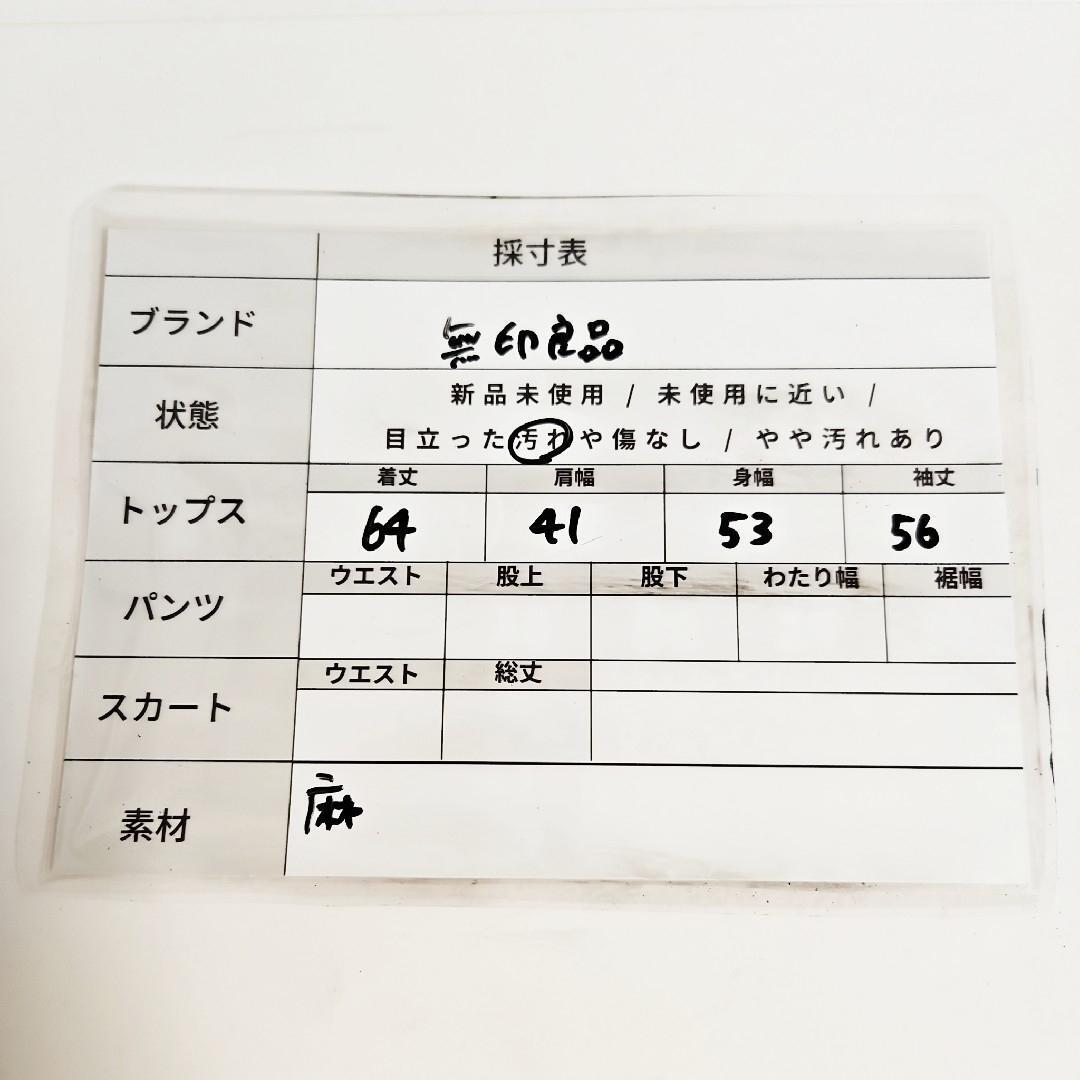 採寸表
ブランド 無印良品
状態 新品未使用 / 未使用に近い /
目立った汚れや傷なし / やや汚れあり
トップス 着丈 肩幅 身幅 袖丈
64 41 53 56
パンツ ウエスト 股上 股下 わたり幅 裾幅
スカート ウエスト 総丈
素材 麻